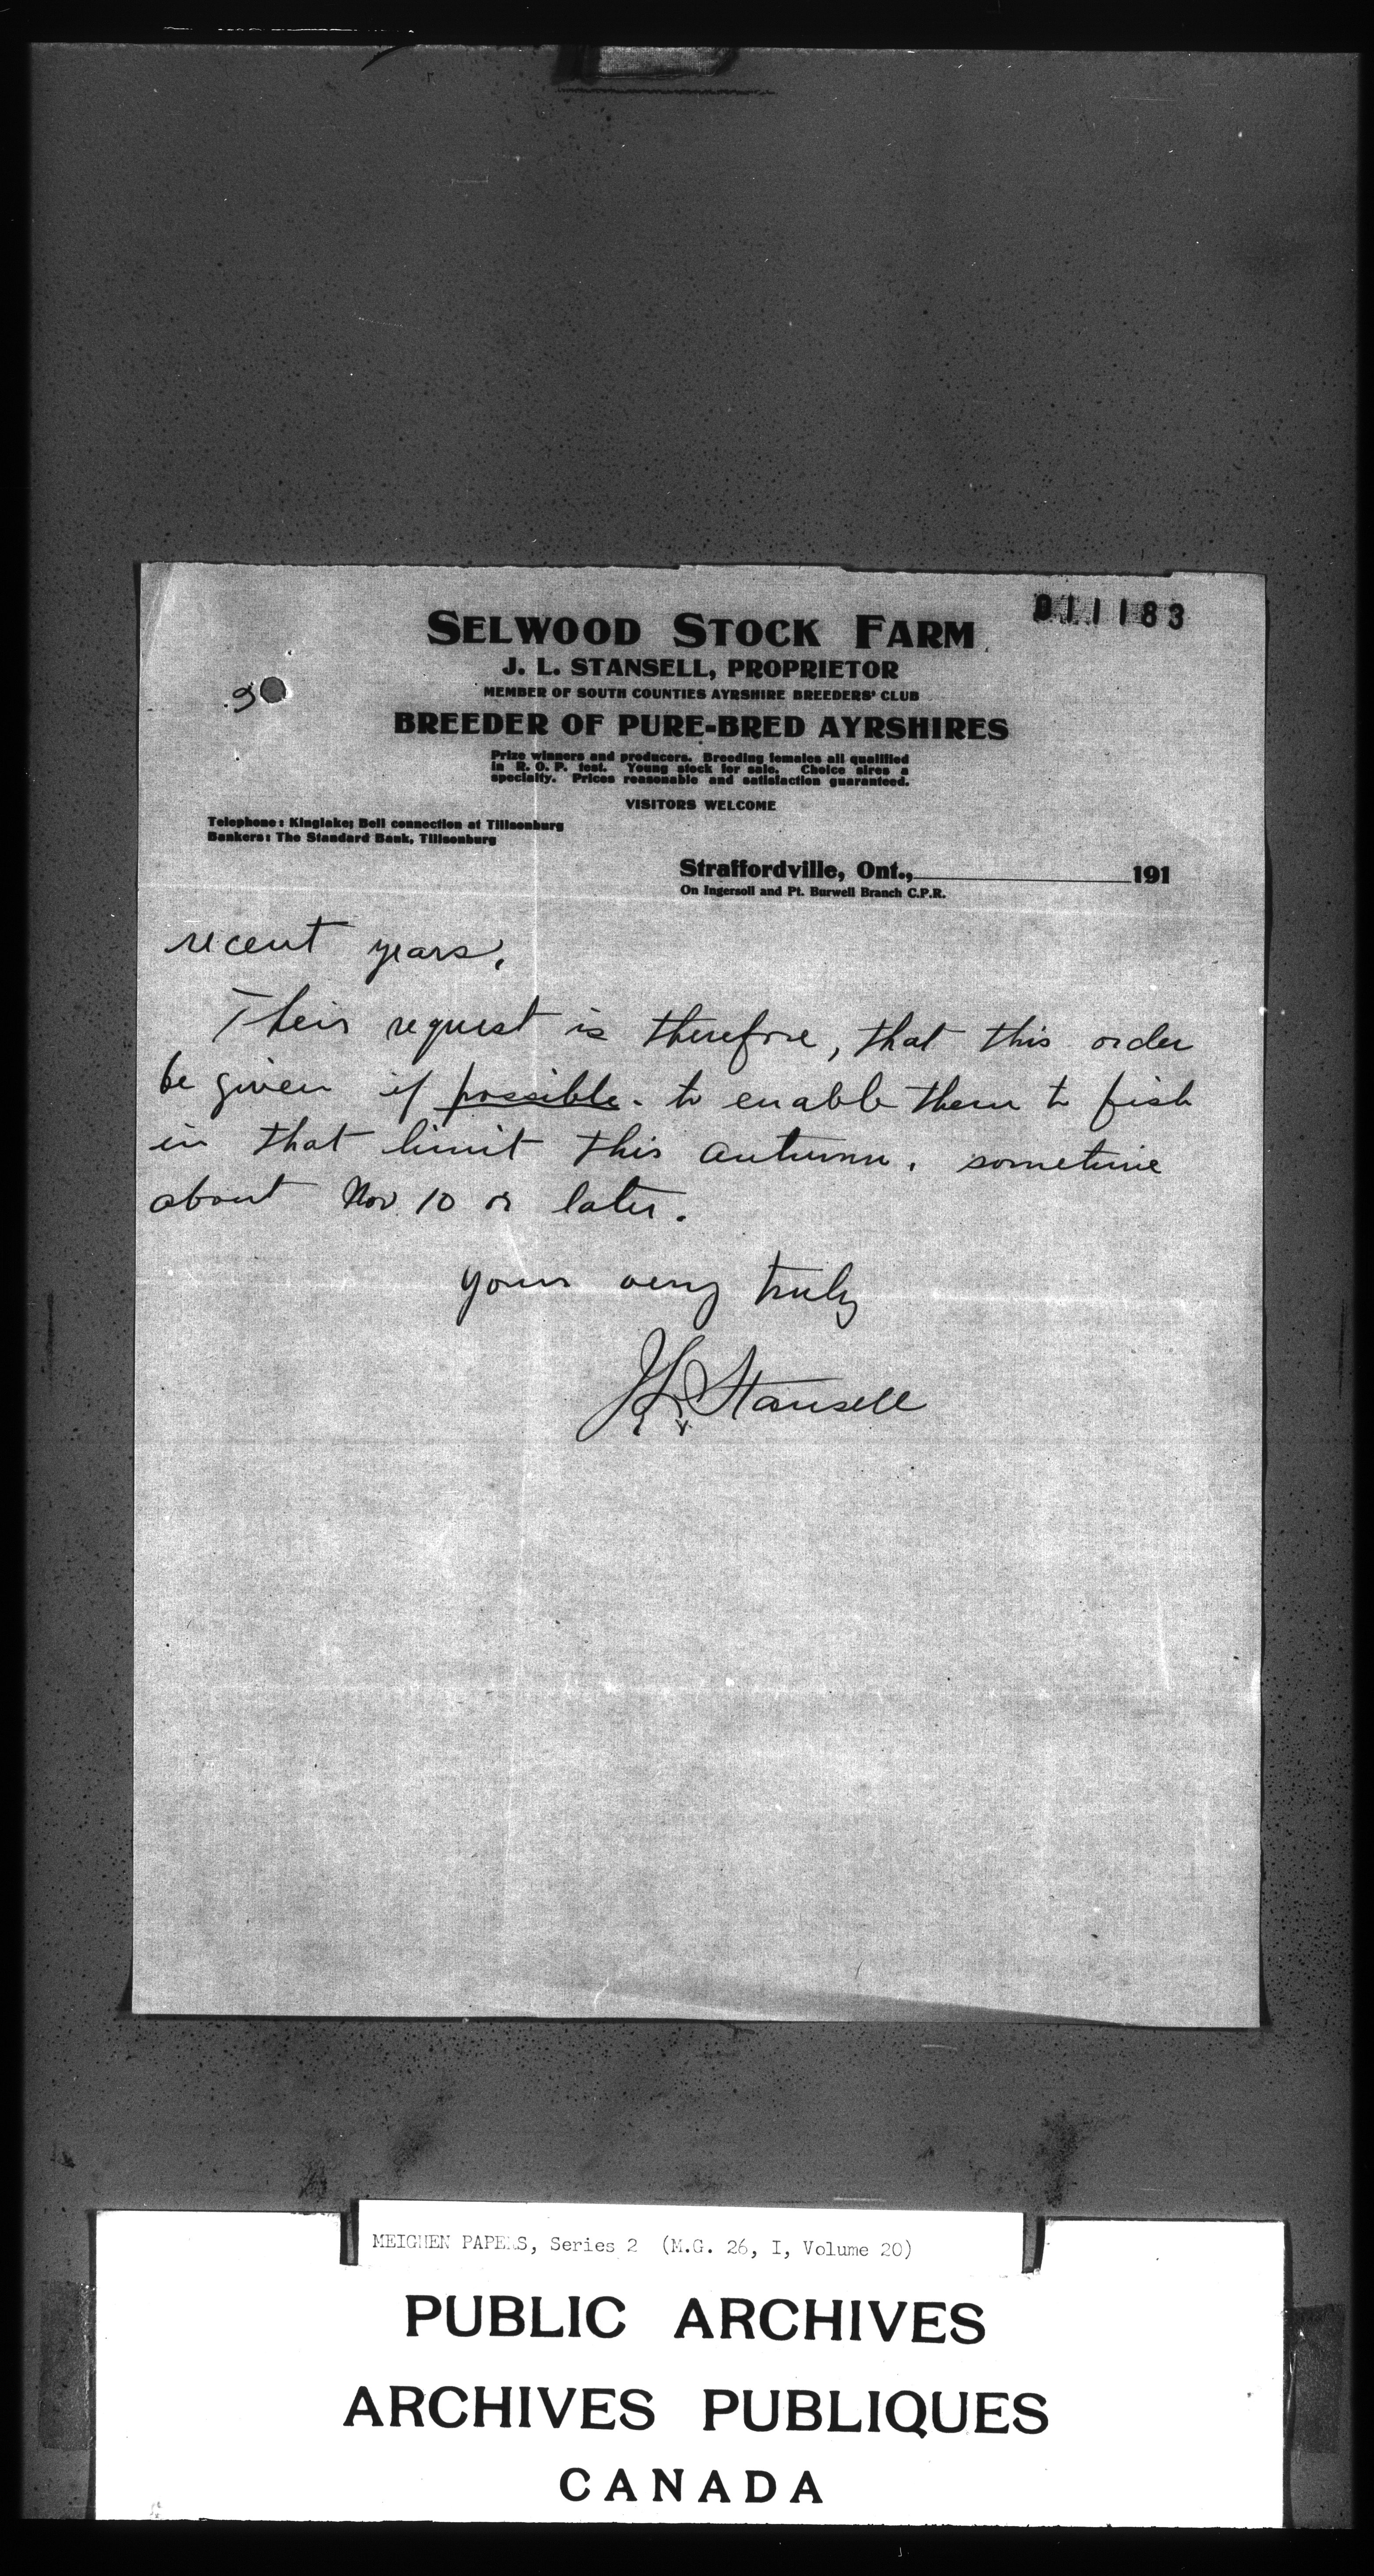 011183
SELWOOD STOCK FARM
J. L. STANSELL, PROPRIETOR
MEMBER OF SOUTH COUNTIES AYRSHIRE BREEDERS' CLUB
BREEDER OF PURE-BRED AYRSHIRES
Prize winners and producers. Breeding females all qualified
in R. O. P. test. Young stock for sale. Choice sires a
specialty. Prices reasonable and satisfaction guaranteed.
VISITORS WELCOME
Telephone: Kinglake; Bell connection at Tillsonburg
Bankers: The Standard Bank, Tillsonburg
Straffordville, Ont., 191
On Ingersoll and Pt. Burwell Branch C.P.R.
recent years.
Their request is therefore, that this order
be given if possible - to enable them to fish
in that limit this autumn, sometime
about Nov 10 or later.
yours very truly
JL Stansell
MEIGHEN PAPERS, Series 2 (M.G. 26, I, Volume 20)
PUBLIC ARCHIVES
ARCHIVES PUBLIQUES
CANADA